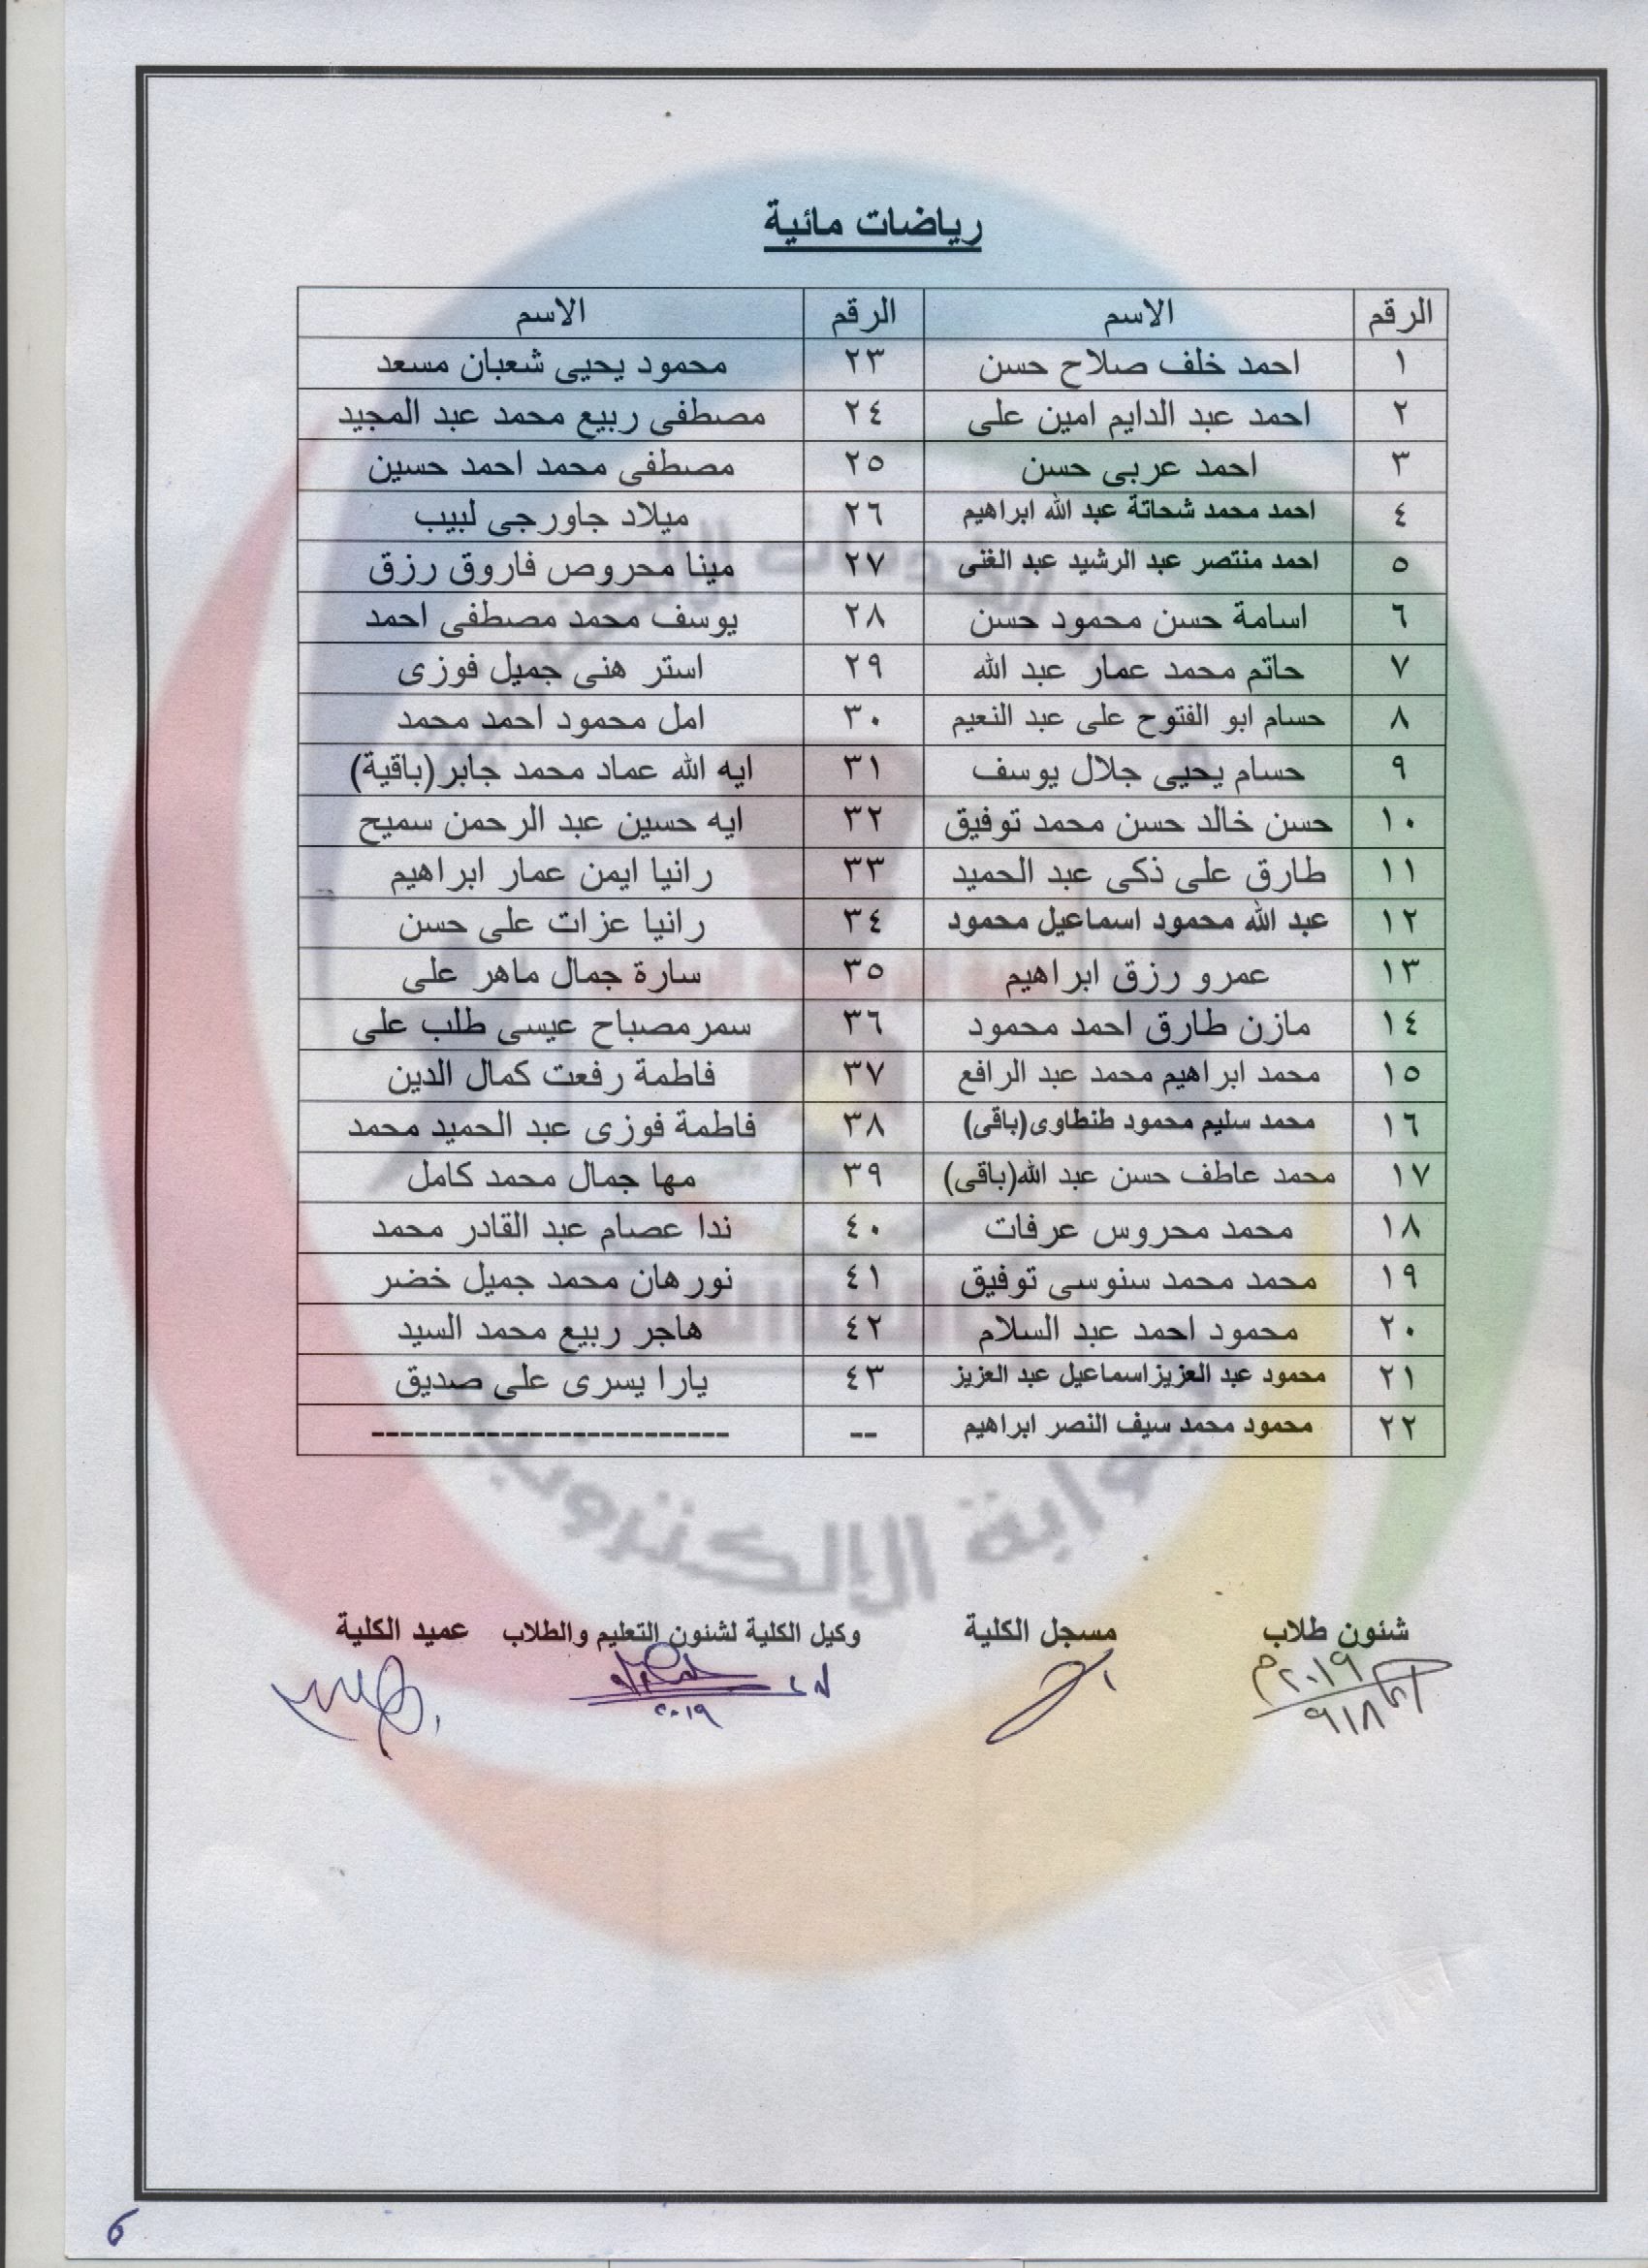 رياضات مائية
الرقم الاسم الرقم الاسم
١ احمد خلف صلاح حسن ٢٣ محمود يحيى شعبان مسعد
٢ احمد عبد الدايم امين على ٢٤ مصطفى ربيع محمد عبد المجيد
٣ احمد عربى حسن ٢٥ مصطفى محمد احمد حسين
٤ احمد محمد شحاتة عبد الله ابراهيم ٢٦ ميلاد جاورجى لبيب
٥ احمد منتصر عبد الرشيد عبد الغنى ٢٧ مينا محروص فاروق رزق
٦ اسامة حسن محمود حسن ٢٨ يوسف محمد مصطفى احمد
٧ حاتم محمد عمار عبد الله ٢٩ استر هنى جميل فوزى
٨ حسام ابو الفتوح على عبد النعيم ٣٠ امل محمود احمد محمد
٩ حسام يحيى جلال يوسف ٣١ ايه الله عماد محمد جابر(باقية)
١٠ حسن خالد حسن محمد توفيق ٣٢ ايه حسين عبد الرحمن سميح
١١ طارق على ذكى عبد الحميد ٣٣ رانيا ايمن عمار ابراهيم
١٢ عبد الله محمود اسماعيل محمود ٣٤ رانيا عزات على حسن
١٣ عمرو رزق ابراهيم ٣٥ سارة جمال ماهر على
١٤ مازن طارق احمد محمود ٣٦ سمرمصباح عيسى طلب على
١٥ محمد ابراهيم محمد عبد الرافع ٣٧ فاطمة رفعت كمال الدين
١٦ محمد سليم محمود طنطاوى(باقى) ٣٨ فاطمة فوزى عبد الحميد محمد
١٧ محمد عاطف حسن عبد الله(باقى) ٣٩ مها جمال محمد كامل
١٨ محمد محروس عرفات ٤٠ ندا عصام عبد القادر محمد
١٩ محمد محمد سنوسى توفيق ٤١ نورهان محمد جميل خضر
٢٠ محمود احمد عبد السلام ٤٢ هاجر ربيع محمد السيد
٢١ محمود عبد العزيزاسماعيل عبد العزيز ٤٣ يارا يسرى على صديق
٢٢ محمود محمد سيف النصر ابراهيم -- -------------------------
البوابة الالكترونية
شئون طلاب مسجل الكلية وكيل الكلية لشئون التعليم والطلاب عميد الكلية
٢٠١٩م ٢٠١٩
٩١٨